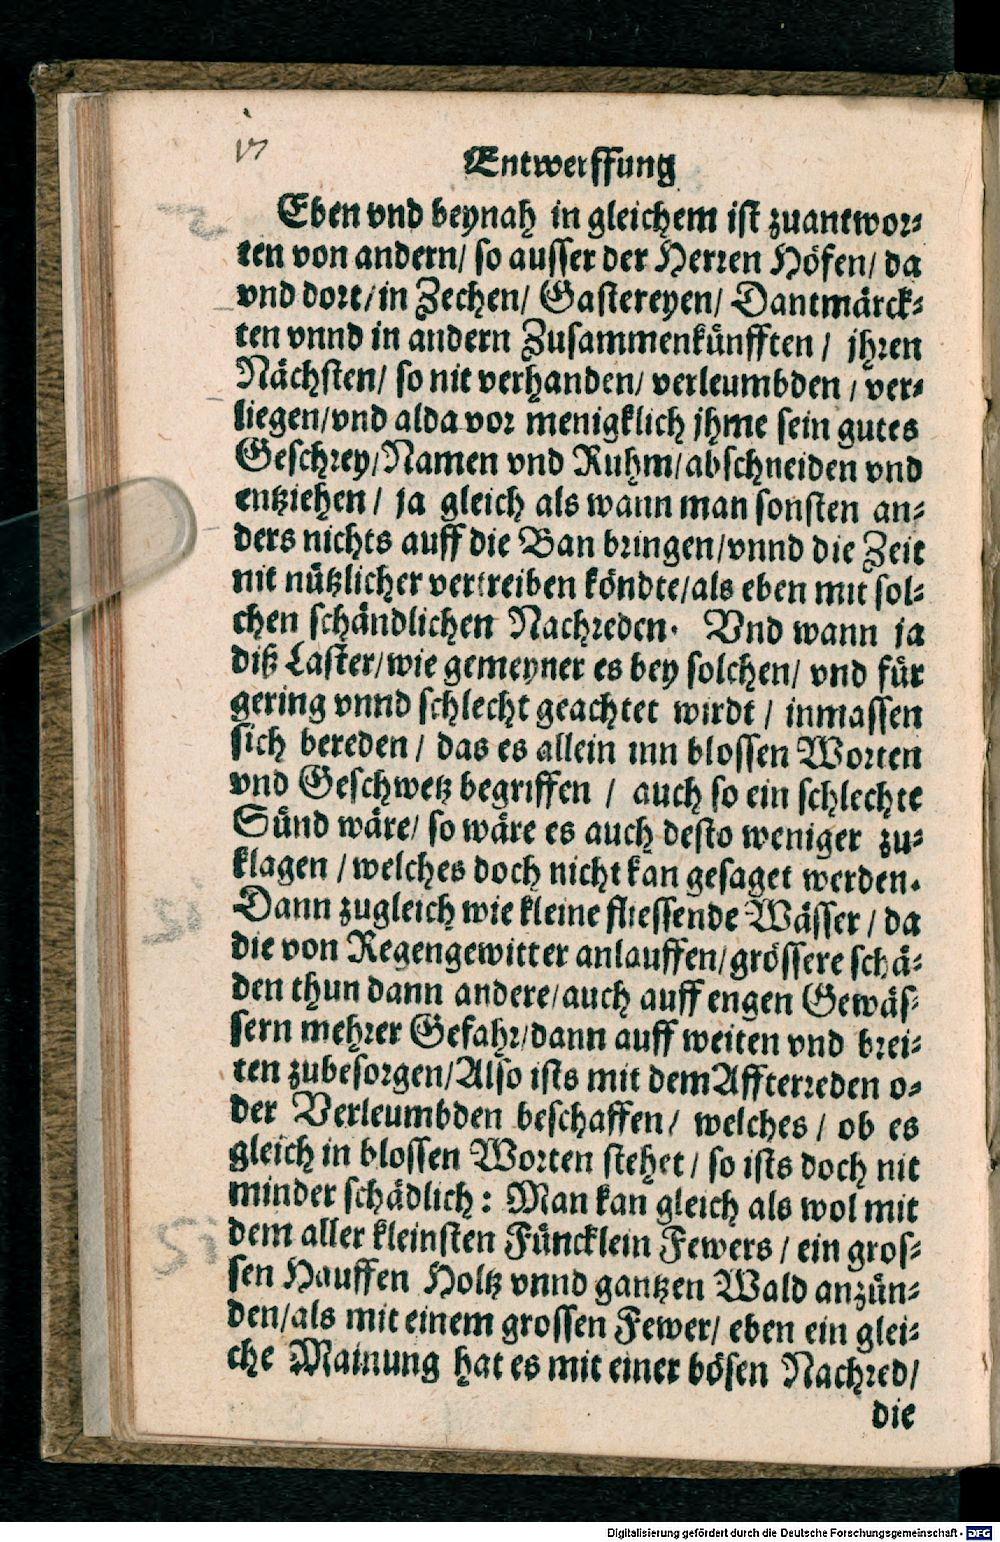 Entwerffung
Eben vnd beynah in gleichem ist zuantwor⸗
ten von andern/ so ausser der Herren Höfen/ da
vnd dort/ in Zechen/ Gastereyen/ Dantmärck⸗
ten vnnd in andern Zusammenkünfften/ jhren
Nächsten/ so nit verhanden/ verleumbden/ ver⸗
liegen/ vnd alda vor menigklich jhme sein gutes
Geschrey/ Namen vnd Ruhm/ abschneiden vnd
entziehen/ ja gleich als wann man sonsten an⸗
ders nichts auff die Ban bringen/ vnnd die Zeit
nit nützlicher vertreiben köndte/ als eben mit sol⸗
chen schändlichen Nachreden. Vnd wann ja
diß Laster/ wie gemeyner es bey solchen/ vnd für
gering vnnd schlecht geachtet wirdt/ inmassen
sich bereden/ das es allein inn blossen Worten
vnd Geschwetz begriffen/ auch so ein schlechte
Sünd wäre/ so wäre es auch desto weniger zu⸗
klagen/ welches doch nicht kan gesaget werden.
Dann zugleich wie kleine fliessende Wässer/ da
die von Regengewitter anlauffen/ grössere schä⸗
den thun dann andere/ auch auff engen Gewäs⸗
sern mehrer Gefahr/ dann auff weiten vnd brei⸗
ten zubesorgen/ Also ists mit dem Affterreden o⸗
der Verleumbden beschaffen/ welches/ ob es
gleich in blossen Worten stehet/ so ists doch nit
minder schädlich: Man kan gleich als wol mit
dem aller kleinsten Füncklein Fewers/ ein gros⸗
sen Hauffen Holtz vnnd gantzen Wald anzün⸗
den/ als mit einem grossen Fewer/ eben ein glei⸗
che Mainung hat es mit einer bösen Nachred/
die
Digitalisierung gefördert durch die Deutsche Forschungsgemeinschaft - DFG